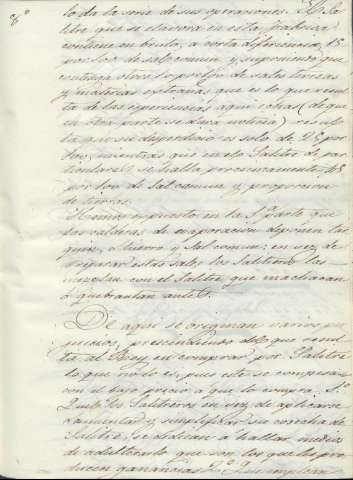 8º
lo da la serie de sus operaciones. El Sa-
litre que se elavora en esta fabrica
contiene en bruto, a corta diferencia 15
por 100 de sal comun, y suponiendo que
contenga otros 10 por 100 de sales terreas
y materias extrañas que es lo que resul-
ta de las esperiencias aqui echas (de que
en otra parte se dará noticia) resul-
ta que su desperdicio es solo de 25 por
100, mientras que en el Salitre de par-
ticulares se halla
por 100 de Sal comun y proporcion
de tierras.
Hemos expuesto en la 1ª parte que
las calderas de evaporacion deponen
y sal comun: en vez de
separar estas sales los Salitreros las
mezclan con el Salitre que machacan
ó quebrantan antes.
De aqui se originan varios per-
juicios, prescindiendo del que resul-
ta al Rey en comprar por Salitre
lo que no lo es, pues este se compensa
con el bajo precio a que lo compra. 1º
Que los Salitreros en vez de aplicarse
a aumentar y simplificar su cosecha de
Salitre, se dedican á hallar medios
de adulterarlo que son los que les pro-
ducen ganancias. 2º Que emplean